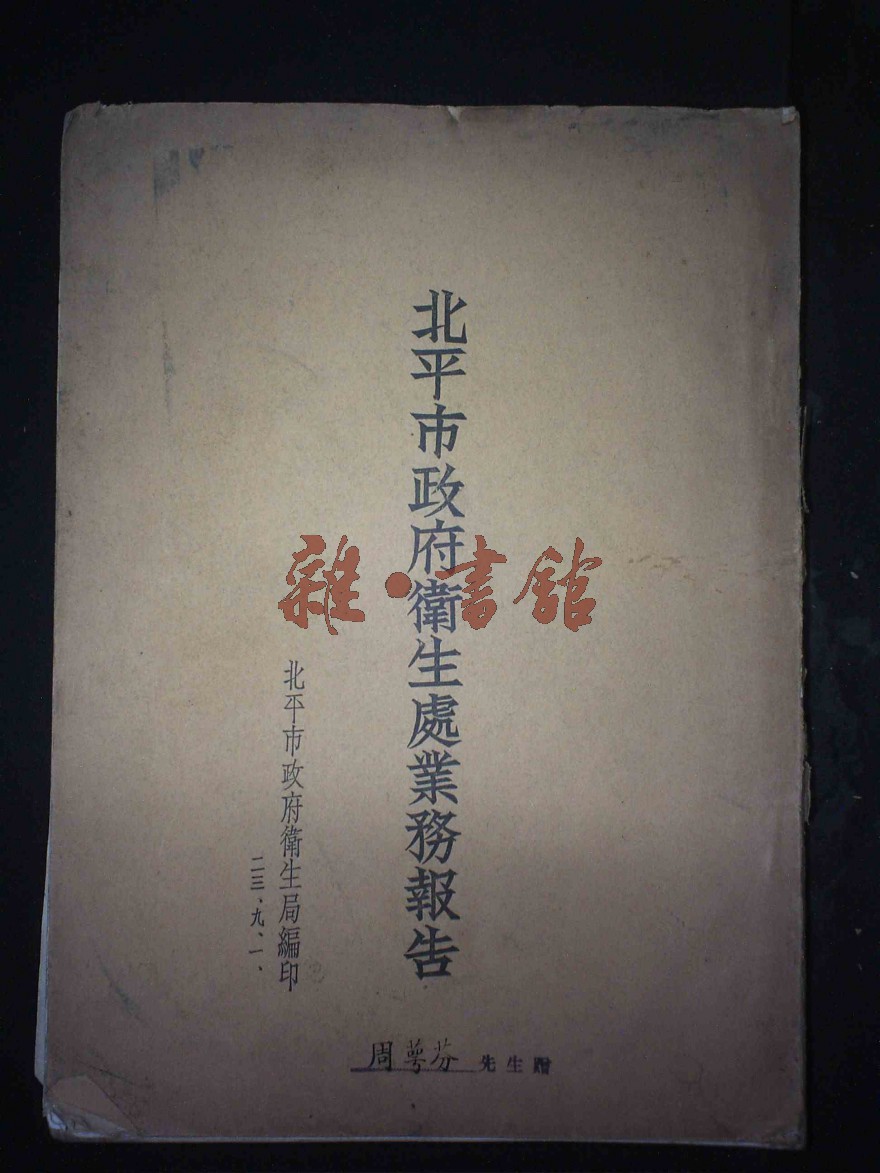 北平市政府衞生處業務報告
雜·書館
北平市政府衞生局編印
二三、九、一、
周萼芬 先生贈